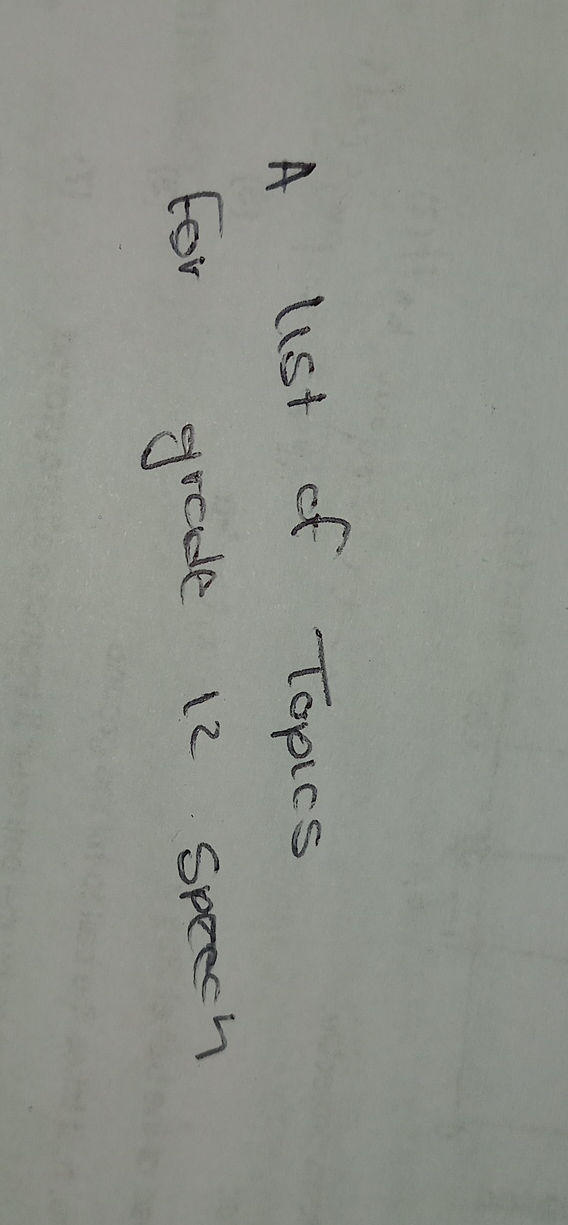 A list of Topics
For grade 12 speech